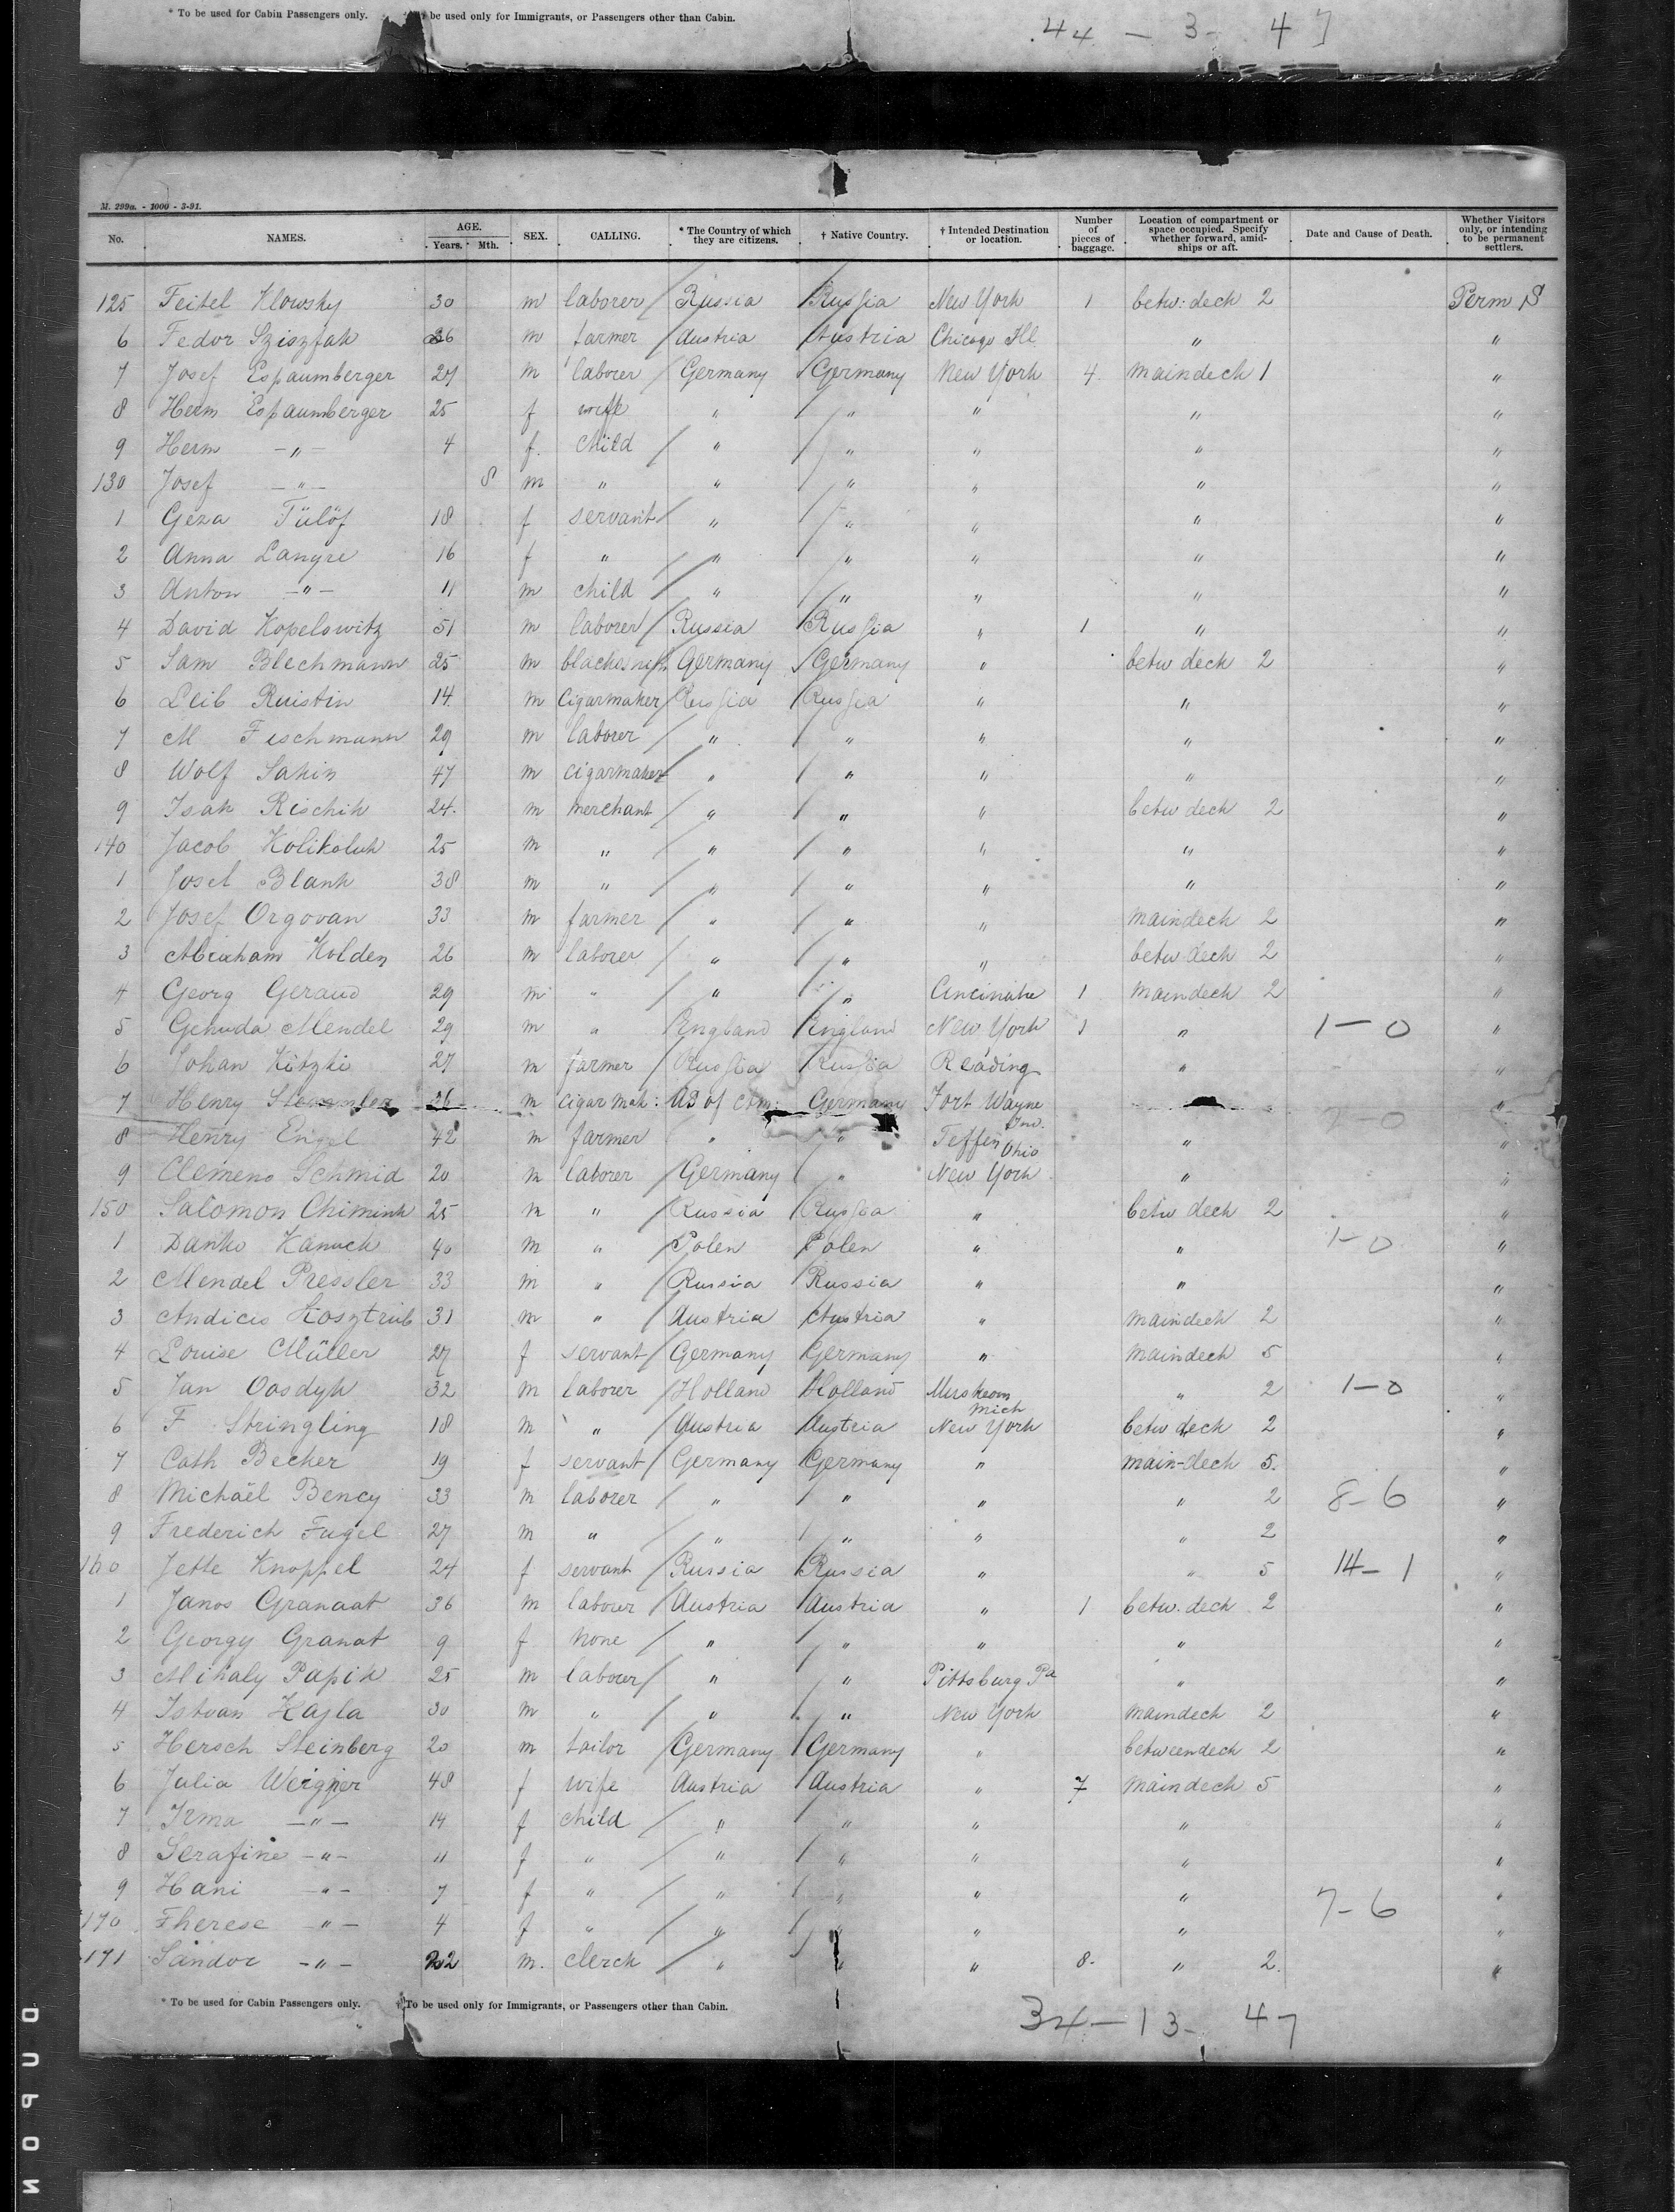 * To be used for Cabin Passengers only. be used only for Immigrants, or Passengers other than Cabin.
44 - 3 - 47
M. 299a. - 1000 - 3-91.
No. NAMES. AGE. Years. Mth. SEX. CALLING. * The Country of which they are citizens. † Native Country. † Intended Destination or location. Number of pieces of baggage. Location of compartment or space occupied. Specify whether forward, amid-ships or aft. Date and Cause of Death. Whether Visitors only, or intending to be permanent settlers.
125 Feitel Klowsky 30 m laborer Russia Russia New York 1 betw: deck 2 Perm S
6 Fedor Sziszfak 36 m farmer Austria Austria Chicago Ill " "
7 Josef Espaumberger 27 m laborer Germany Germany New York 4 maindeck 1 "
8 Herm Espaumberger 25 f wife " " " " "
9 Herm -"- 4 f. child " " " " "
130 Josef -"- 8 m " " " " " "
1 Geza Fülöf 18 f servant " " " " "
2 Anna Langre 16 f " " " " " "
3 Anton -"- 11 m child " " " " "
4 David Kopelowitz 51 m laborer Russia Russia " 1 " "
5 Sam Blechmann 25 m Germany Germany " betw deck 2 "
6 Leib Ruistin 14 m Cigarmaker Russia Russia " " "
7 M Fischmann 29 m laborer " " " " "
8 Wolf Sakin 47 m cigarmaker " " " " "
9 Isak Rischik 24. m merchant " " " betw deck 2 "
140 Jacob Kolikoluk 25 m " " " " " "
1 Josel Blank 38 m " " " " " "
2 Josef Orgovan 33 m farmer " " " maindeck 2 "
3 Abraham Kolden 26 m laborer " " " betw deck 2 "
4 Georg Geraud 29 m " " " 1 maindeck 2 "
5 Gehuda Mendel 29 m " England England New York 1 " 1-0 "
6 Johan Kitzki 27 m farmer Russia Russia Reading " "
7 Henry 26 m cigar mak: Germany Fort Wayne Ind. "
8 Henry Engel 42 m farmer " " Teffen Ohio " "
9 Clemens Schmid 20 m laborer Germany " New York " "
150 Salomon Chimink 25 m " Russia Russia " betw deck 2 "
1 Danko Kanuck 40 m " Polen Polen " " 1-0 "
2 Mendel Pressler 33 m " Russia Russia " " "
3 Andices Kosztrub 31 m " Austria Austria " maindeck 2 "
4 Louise Müller 27 f servant Germany Germany " maindeck 5 "
5 Jan Oosdyk 32 m laborer Holland Holland Mich " 2 1-0 "
6 F Stringling 18 m " Austria Austria New York betw deck 2 "
7 Cath Becker 19 f servant Germany Germany " main-deck 5. "
8 Michaël Bency 33 m laborer " " " " 2 8-6 "
9 Frederich Fugel 27 m " " " " " 2 "
160 Jette Knoppel 24 f servant Russia Russia " " 5 14-1 "
1 Janos Granaat 36 m laborer Austria Austria " 1 betw. deck 2 "
2 Georgy Granat 9 f none " " " " "
3 Mihaly Papik 25 m laborer " " Pittsburg Pa " "
4 Istvan Kajla 30 m " " " New York maindeck 2 "
5 Hersch Steinberg 20 m tailor Germany Germany " betweendeck 2 "
6 Julia Weigner 48 f wife Austria Austria " 7 maindeck 5 "
7 Irma -"- 14 f child " " " " "
8 Serafine -"- 11 f " " " " " "
9 Hani -"- 7 f " " " " " 7-6 "
170 Therese -"- 4 f " " " " " "
171 Sandor -"- 22 m. clerck " " " 8. " 2. "
* To be used for Cabin Passengers only. † To be used only for Immigrants, or Passengers other than Cabin.
34-13- 47